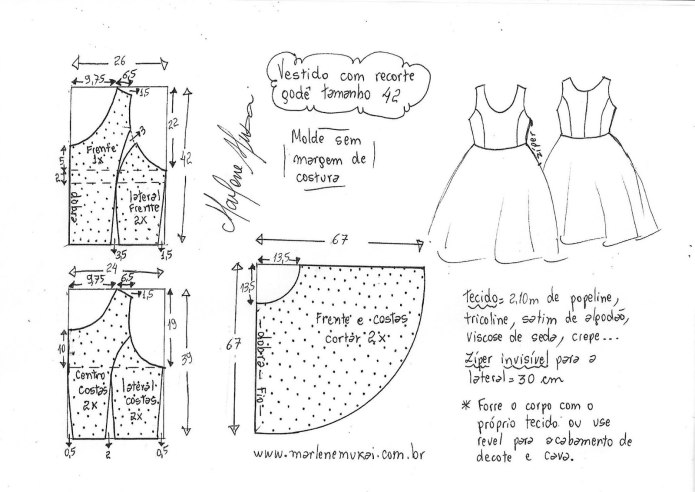 26
9,75
6,5
1,5
22
42
3
Frente
1x
5
2
dobra
lateral
Frente
2x
3,5
1,5
24
9,75
6,5
1,5
19
39
10
Centro
Costas
2x
lateral
costas
2x
0,5
2
0,5
Vestido com recorte
godê tamanho 42
Molde sem
margem de
costura
Marlene Mukai
67
13,5
13,5
67
Frente e costas
cortar 2x
dobra - Fio
www.marlenemukai.com.br
zíper
tecido= 2,10m de popeline,
tricoline, satim de algodão,
viscose de seda, crepe...
Zíper invisível para a
lateral = 30 cm
* Forre o corpo com o
próprio tecido ou use
revel para acabamento de
decote e cava.